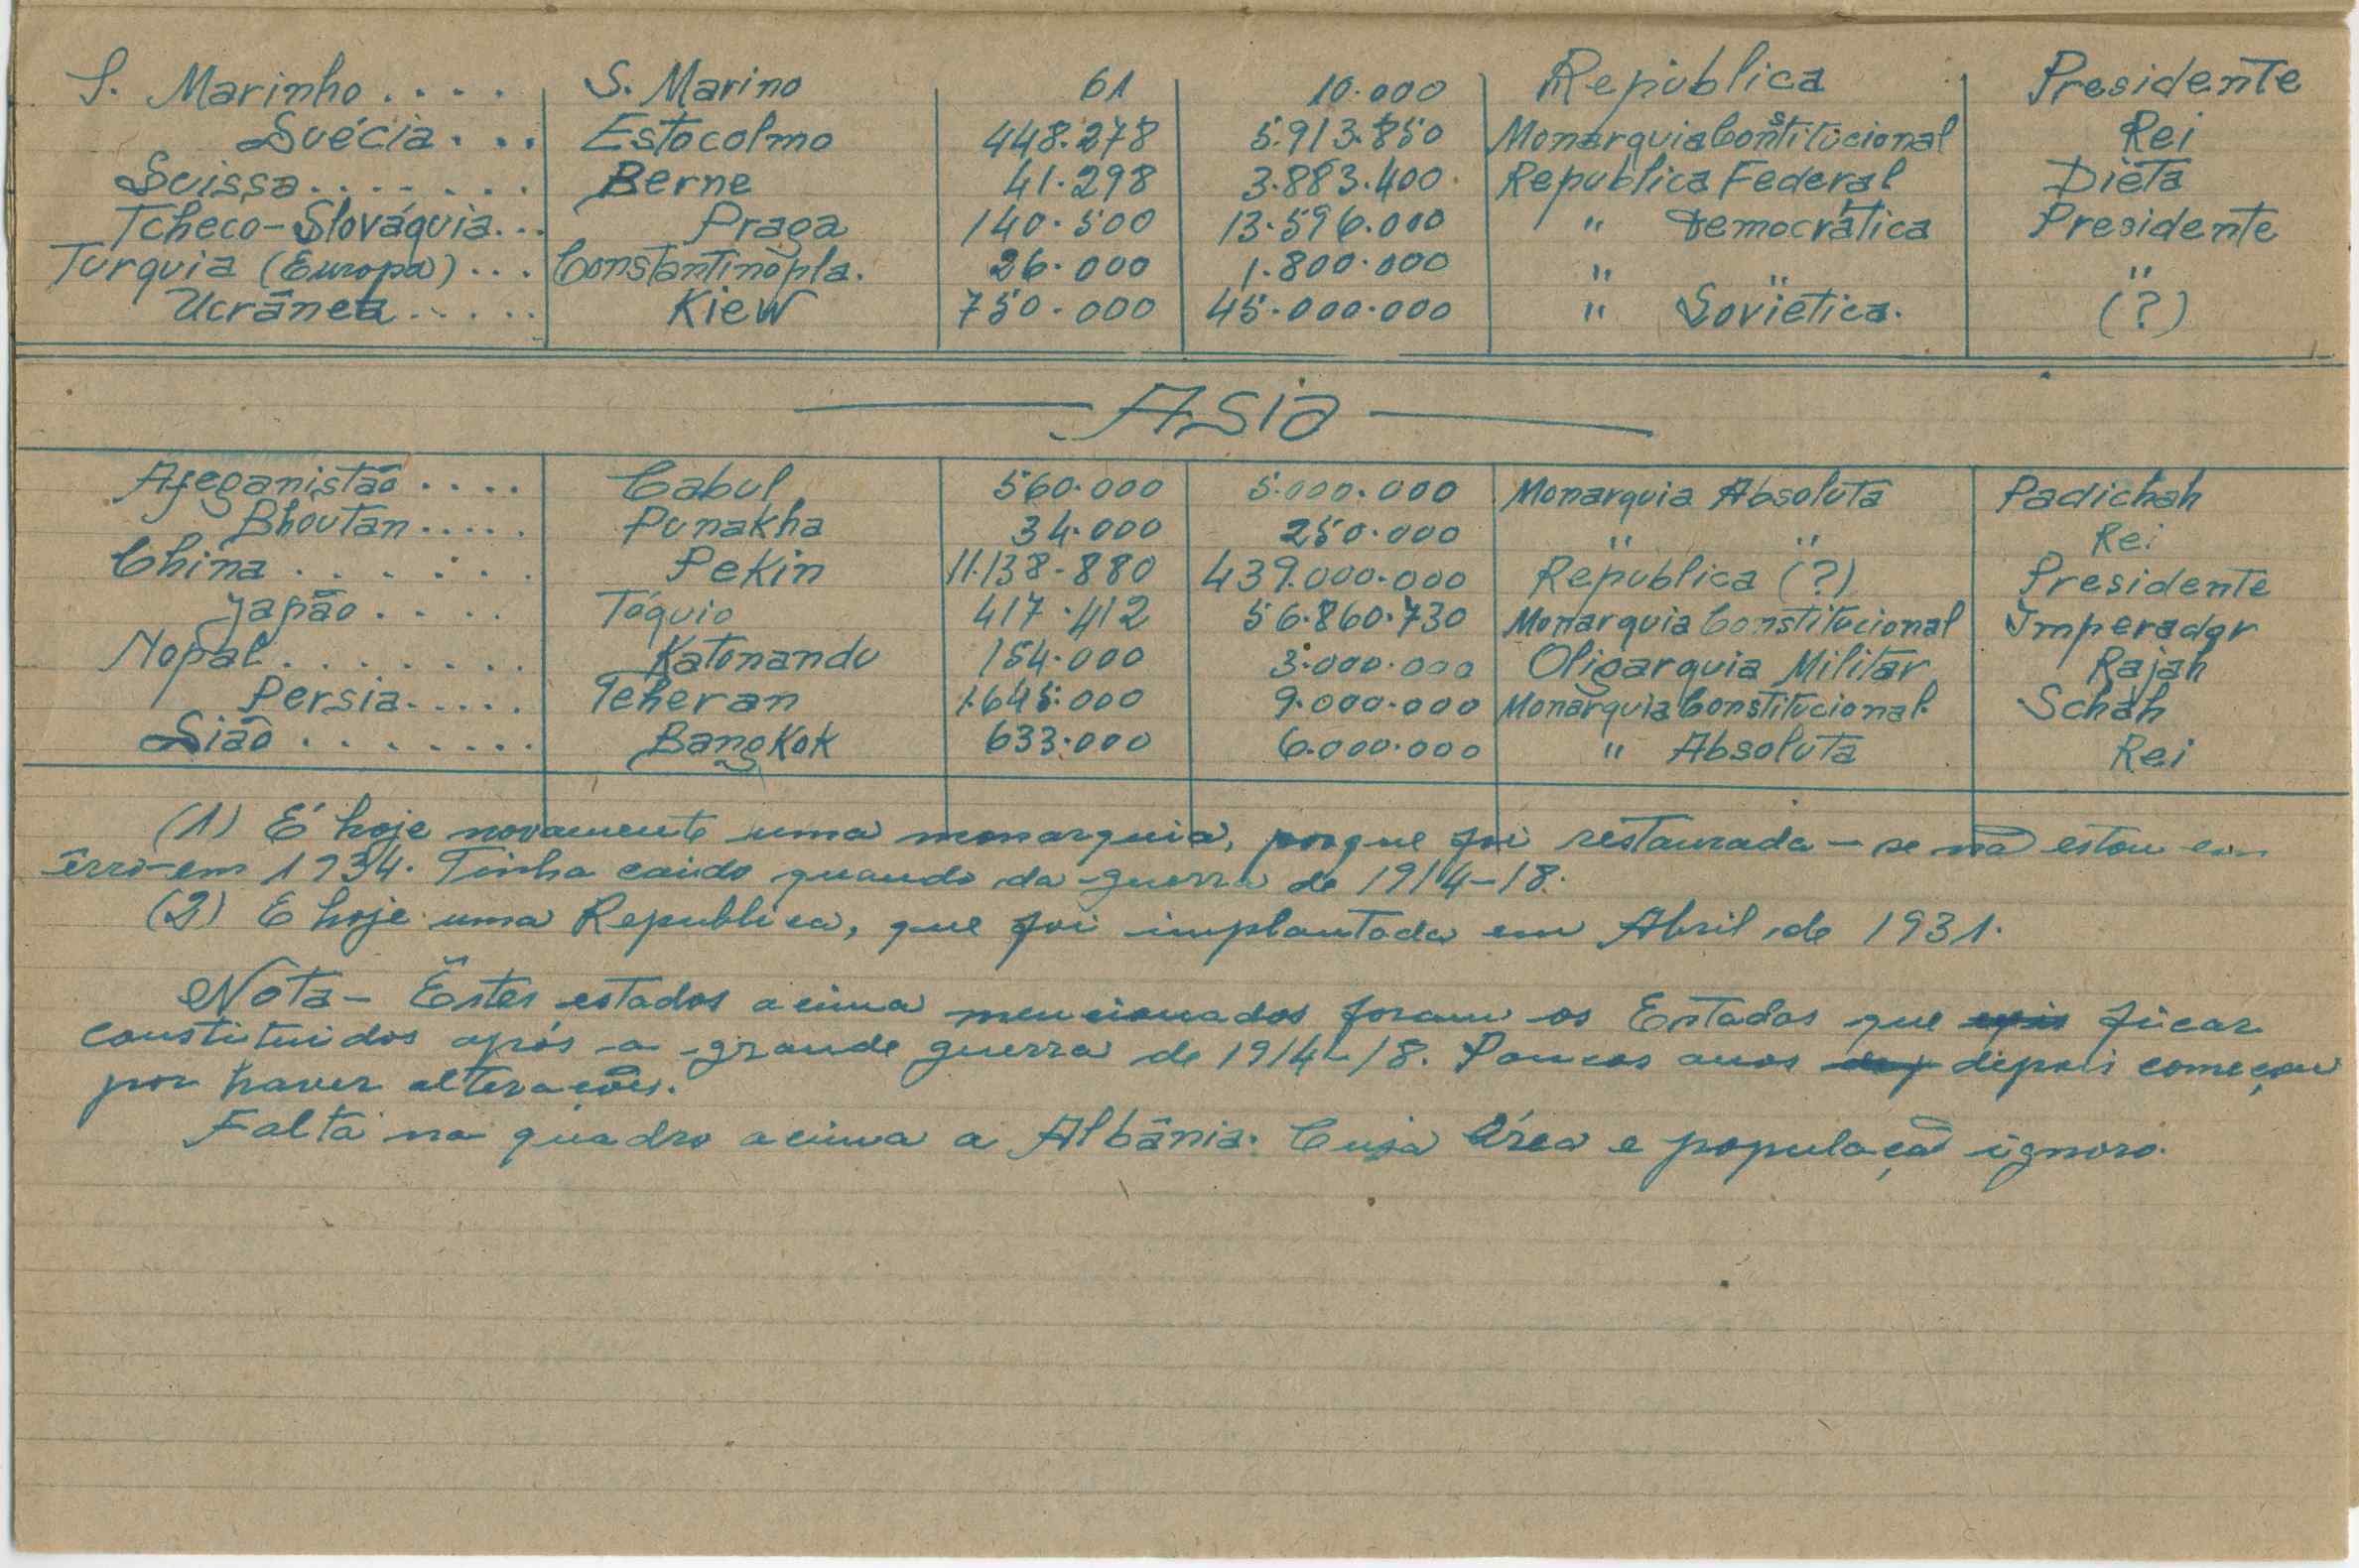 S. Marinho .... S. Marino 61 10.000 República Presidente
Suécia... Estocolmo 448.278 5.913.850 Monarquia Constitucional Rei
Suissa....... Berne 41.298 3.883.400 Republica Federal Diéta
Tcheco-Slováquia... Praga 140.500 13.596.000 " Democrática Presidente
Turquia (Europa)... Constantinopla. 26.000 1.800.000 " " "
Ucrânea..... Kiew 750.000 45.000.000 " Soviética. (?)
Asia
Afeganistão.... Cabul 560.000 5.000.000 Monarquia Absoluta Padichah
Bhoutan..... Punakha 34.000 250.000 " " Rei
China....... Pekin 11.138.880 439.000.000 República (?) Presidente
Japão.... Tóquio 417.412 56.860.730 Monarquia Constitucional Imperador
Nopal....... Katonandu 154.000 3.000.000 Oligarquia Militar Rajah
Persia..... Teheran 1.645.000 9.000.000 Monarquia Constitucional. Schah
Sião........ Bangkok 633.000 6.000.000 " Absoluta Rei
(1) É hoje novamente uma monarquia, porque foi restaurada - se não estou em
êrro - em 1934. Tinha caido quando da guerra de 1914-18.
(2) E hoje uma Republica, que foi implantada em Abril de 1931.
Nota - Êstes estados acima mencionados foram os Estados que ficar
constituidos após a grande guerra de 1914-18. Poucos anos depois começou
por haver alterações.
Falta no quadro acima a Albânia. Cuja área e população ignoro.